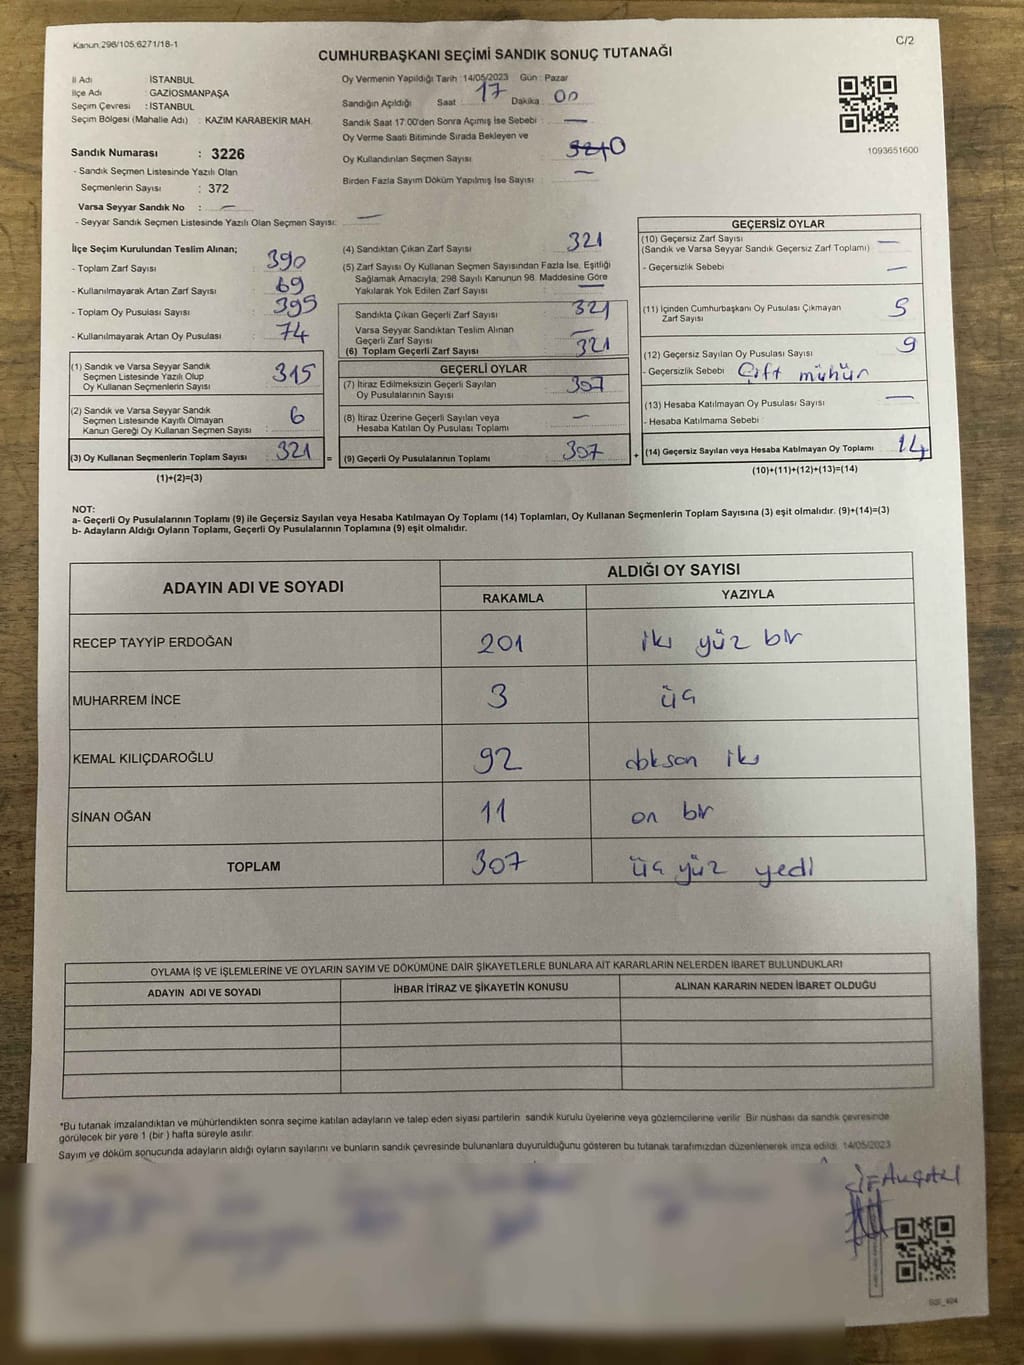 Kanun.298/105.6271/18-1
C/2
CUMHURBAŞKANI SEÇİMİ SANDIK SONUÇ TUTANAĞI
İl Adı : İSTANBUL
İlçe Adı : GAZİOSMANPAŞA
Seçim Çevresi : İSTANBUL
Seçim Bölgesi (Mahalle Adı) : KAZIM KARABEKİR MAH.
Sandık Numarası : 3226
- Sandık Seçmen Listesinde Yazılı Olan
Seçmenlerin Sayısı : 372
Varsa Seyyar Sandık No : —
- Seyyar Sandık Seçmen Listesinde Yazılı Olan Seçmen Sayısı: —
Oy Vermenin Yapıldığı Tarih : 14/05/2023 Gün : Pazar
Sandığın Açıldığı Saat : 17 Dakika : 00
Sandık Saat 17:00'den Sonra Açımış İse Sebebi : —
Oy Verme Saati Bitiminde Sırada Bekleyen ve
Oy Kullandırılan Seçmen Sayısı : 0
Birden Fazla Sayım Döküm Yapılmış İse Sayısı : —
1093651600
İlçe Seçim Kurulundan Teslim Alınan;
- Toplam Zarf Sayısı : 390
- Kullanılmayarak Artan Zarf Sayısı : 69
- Toplam Oy Pusulası Sayısı : 395
- Kullanılmayarak Artan Oy Pusulası : 74
(1) Sandık ve Varsa Seyyar Sandık
Seçmen Listesinde Yazılı Olup
Oy Kullanan Seçmenlerin Sayısı : 315
(2) Sandık ve Varsa Seyyar Sandık
Seçmen Listesinde Kayıtlı Olmayan
Kanun Gereği Oy Kullanan Seçmen Sayısı : 6
(3) Oy Kullanan Seçmenlerin Toplam Sayısı : 321
(1)+(2)=(3)
(4) Sandıktan Çıkan Zarf Sayısı : 321
(5) Zarf Sayısı Oy Kullanan Seçmen Sayısından Fazla İse, Eşitliği
Sağlamak Amacıyla, 298 Sayılı Kanunun 98. Maddesine Göre
Yakılarak Yok Edilen Zarf Sayısı : —
Sandıkta Çıkan Geçerli Zarf Sayısı : 321
Varsa Seyyar Sandıktan Teslim Alınan
Geçerli Zarf Sayısı : —
(6) Toplam Geçerli Zarf Sayısı : 321
GEÇERLİ OYLAR
(7) İtiraz Edilmeksizin Geçerli Sayılan
Oy Pusulalarının Sayısı : 307
(8) İtiraz Üzerine Geçerli Sayılan veya
Hesaba Katılan Oy Pusulası Toplamı : —
= (9) Geçerli Oy Pusulalarının Toplamı : 307
GEÇERSİZ OYLAR
(10) Geçersiz Zarf Sayısı : —
(Sandık ve Varsa Seyyar Sandık Geçersiz Zarf Toplamı)
- Geçersizlik Sebebi : —
(11) İçinden Cumhurbaşkanı Oy Pusulası Çıkmayan
Zarf Sayısı : 5
(12) Geçersiz Sayılan Oy Pusulası Sayısı : 9
- Geçersizlik Sebebi : Çift mühür
(13) Hesaba Katılmayan Oy Pusulası Sayısı : —
- Hesaba Katılmama Sebebi :
+ (14) Geçersiz Sayılan veya Hesaba Katılmayan Oy Toplamı : 14
(10)+(11)+(12)+(13)=(14)
NOT:
a- Geçerli Oy Pusulalarının Toplamı (9) ile Geçersiz Sayılan veya Hesaba Katılmayan Oy Toplamı (14) Toplamları, Oy Kullanan Seçmenlerin Toplam Sayısına (3) eşit olmalıdır. (9)+(14)=(3)
b- Adayların Aldığı Oyların Toplamı, Geçerli Oy Pusulalarının Toplamına (9) eşit olmalıdır.
ADAYIN ADI VE SOYADI ALDIĞI OY SAYISI
RAKAMLA YAZIYLA
RECEP TAYYİP ERDOĞAN 201 iki yüz bir
MUHARREM İNCE 3 üç
KEMAL KILIÇDAROĞLU 92 doksan iki
SİNAN OĞAN 11 on bir
TOPLAM 307 üç yüz yedi
OYLAMA İŞ VE İŞLEMLERİNE VE OYLARIN SAYIM VE DÖKÜMÜNE DAİR ŞİKAYETLERLE BUNLARA AİT KARARLARIN NELERDEN İBARET BULUNDUKLARI
ADAYIN ADI VE SOYADI İHBAR İTİRAZ VE ŞİKAYETİN KONUSU ALINAN KARARIN NEDEN İBARET OLDUĞU
*Bu tutanak imzalandıktan ve mühürlendikten sonra seçime katılan adayların ve talep eden siyasi partilerin sandık kurulu üyelerine veya gözlemcilerine verilir. Bir nüshası da sandık çevresinde
görülecek bir yere 1 (bir ) hafta süreyle asılır.
Sayım ve döküm sonucunda adayların aldığı oyların sayılarını ve bunların sandık çevresinde bulunanlara duyurulduğunu gösteren bu tutanak tarafımızdan düzenlenerek imza edildi. 14/05/2023